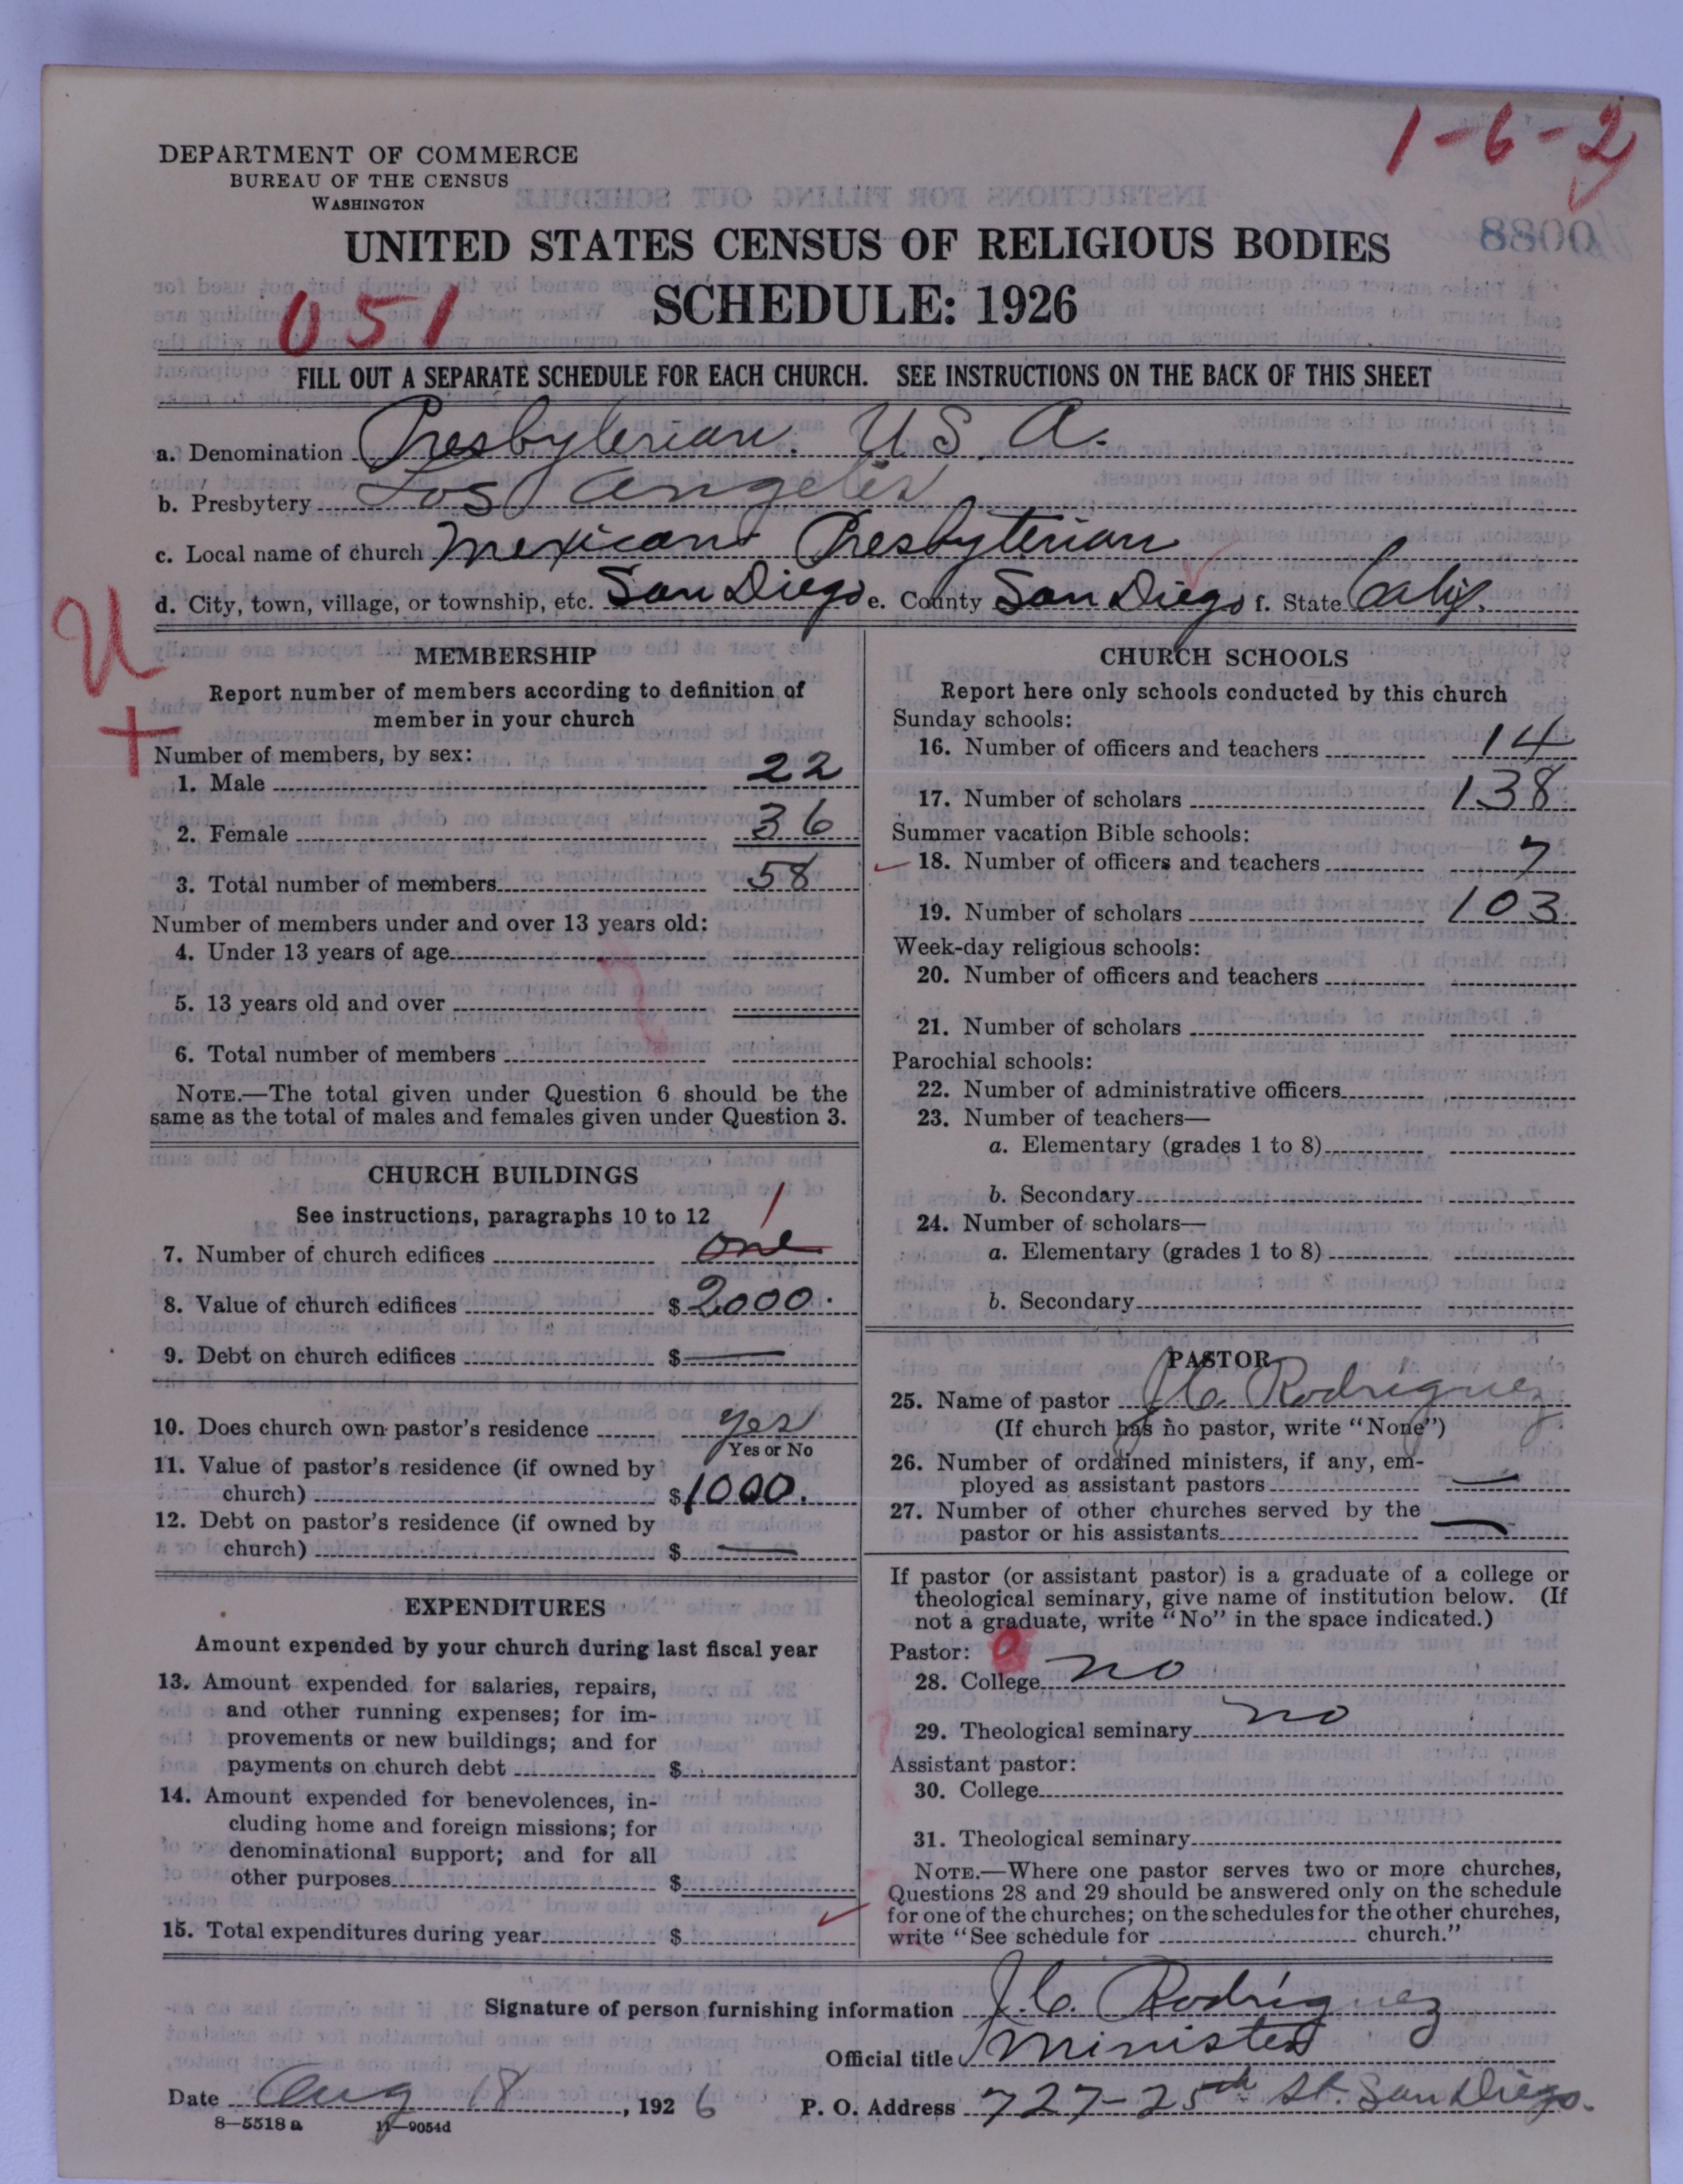 1-6-2
DEPARTMENT OF COMMERCE
BUREAU OF THE CENSUS
WASHINGTON
UNITED STATES CENSUS OF RELIGIOUS BODIES
SCHEDULE: 1926
051
FILL OUT A SEPARATE SCHEDULE FOR EACH CHURCH. SEE INSTRUCTIONS ON THE BACK OF THIS SHEET
a. Denomination Presbyterian. U S. A.
b. Presbytery Los Angeles
c. Local name of church Mexican Presbyterian
d. City, town, village, or township, etc. San Diego e. County San Diego f. State Calif.
U
+
MEMBERSHIP
Report number of members according to definition of
member in your church
Number of members, by sex:
1. Male 22
2. Female 36
3. Total number of members 58
Number of members under and over 13 years old:
4. Under 13 years of age
5. 13 years old and over
6. Total number of members
NOTE.—The total given under Question 6 should be the
same as the total of males and females given under Question 3.
CHURCH BUILDINGS
See instructions, paragraphs 10 to 12
1
7. Number of church edifices one
8. Value of church edifices $2000.
9. Debt on church edifices $—
10. Does church own pastor's residence yes
Yes or No
11. Value of pastor's residence (if owned by
church) $1000.
12. Debt on pastor's residence (if owned by
church) $ —
EXPENDITURES
Amount expended by your church during last fiscal year
13. Amount expended for salaries, repairs,
and other running expenses; for im-
provements or new buildings; and for
payments on church debt $
14. Amount expended for benevolences, in-
cluding home and foreign missions; for
denominational support; and for all
other purposes $
15. Total expenditures during year $
CHURCH SCHOOLS
Report here only schools conducted by this church
Sunday schools:
16. Number of officers and teachers 14
17. Number of scholars 138
Summer vacation Bible schools:
18. Number of officers and teachers 7
19. Number of scholars 103
Week-day religious schools:
20. Number of officers and teachers
21. Number of scholars
Parochial schools:
22. Number of administrative officers
23. Number of teachers—
a. Elementary (grades 1 to 8)
b. Secondary
24. Number of scholars—
a. Elementary (grades 1 to 8)
b. Secondary
PASTOR
25. Name of pastor J. C. Rodriguez
(If church has no pastor, write "None")
26. Number of ordained ministers, if any, em-
ployed as assistant pastors —
27. Number of other churches served by the
pastor or his assistants —
If pastor (or assistant pastor) is a graduate of a college or
theological seminary, give name of institution below. (If
not a graduate, write "No" in the space indicated.)
Pastor: 0
28. College no
29. Theological seminary no
Assistant pastor:
30. College
31. Theological seminary
NOTE.—Where one pastor serves two or more churches,
Questions 28 and 29 should be answered only on the schedule
for one of the churches; on the schedules for the other churches,
write "See schedule for church."
Signature of person furnishing information J. C. Rodriguez
Official title Minister
Date Aug 18, 1926 P. O. Address 727-25th St. San Diego.
8—5518 a 11—9054d